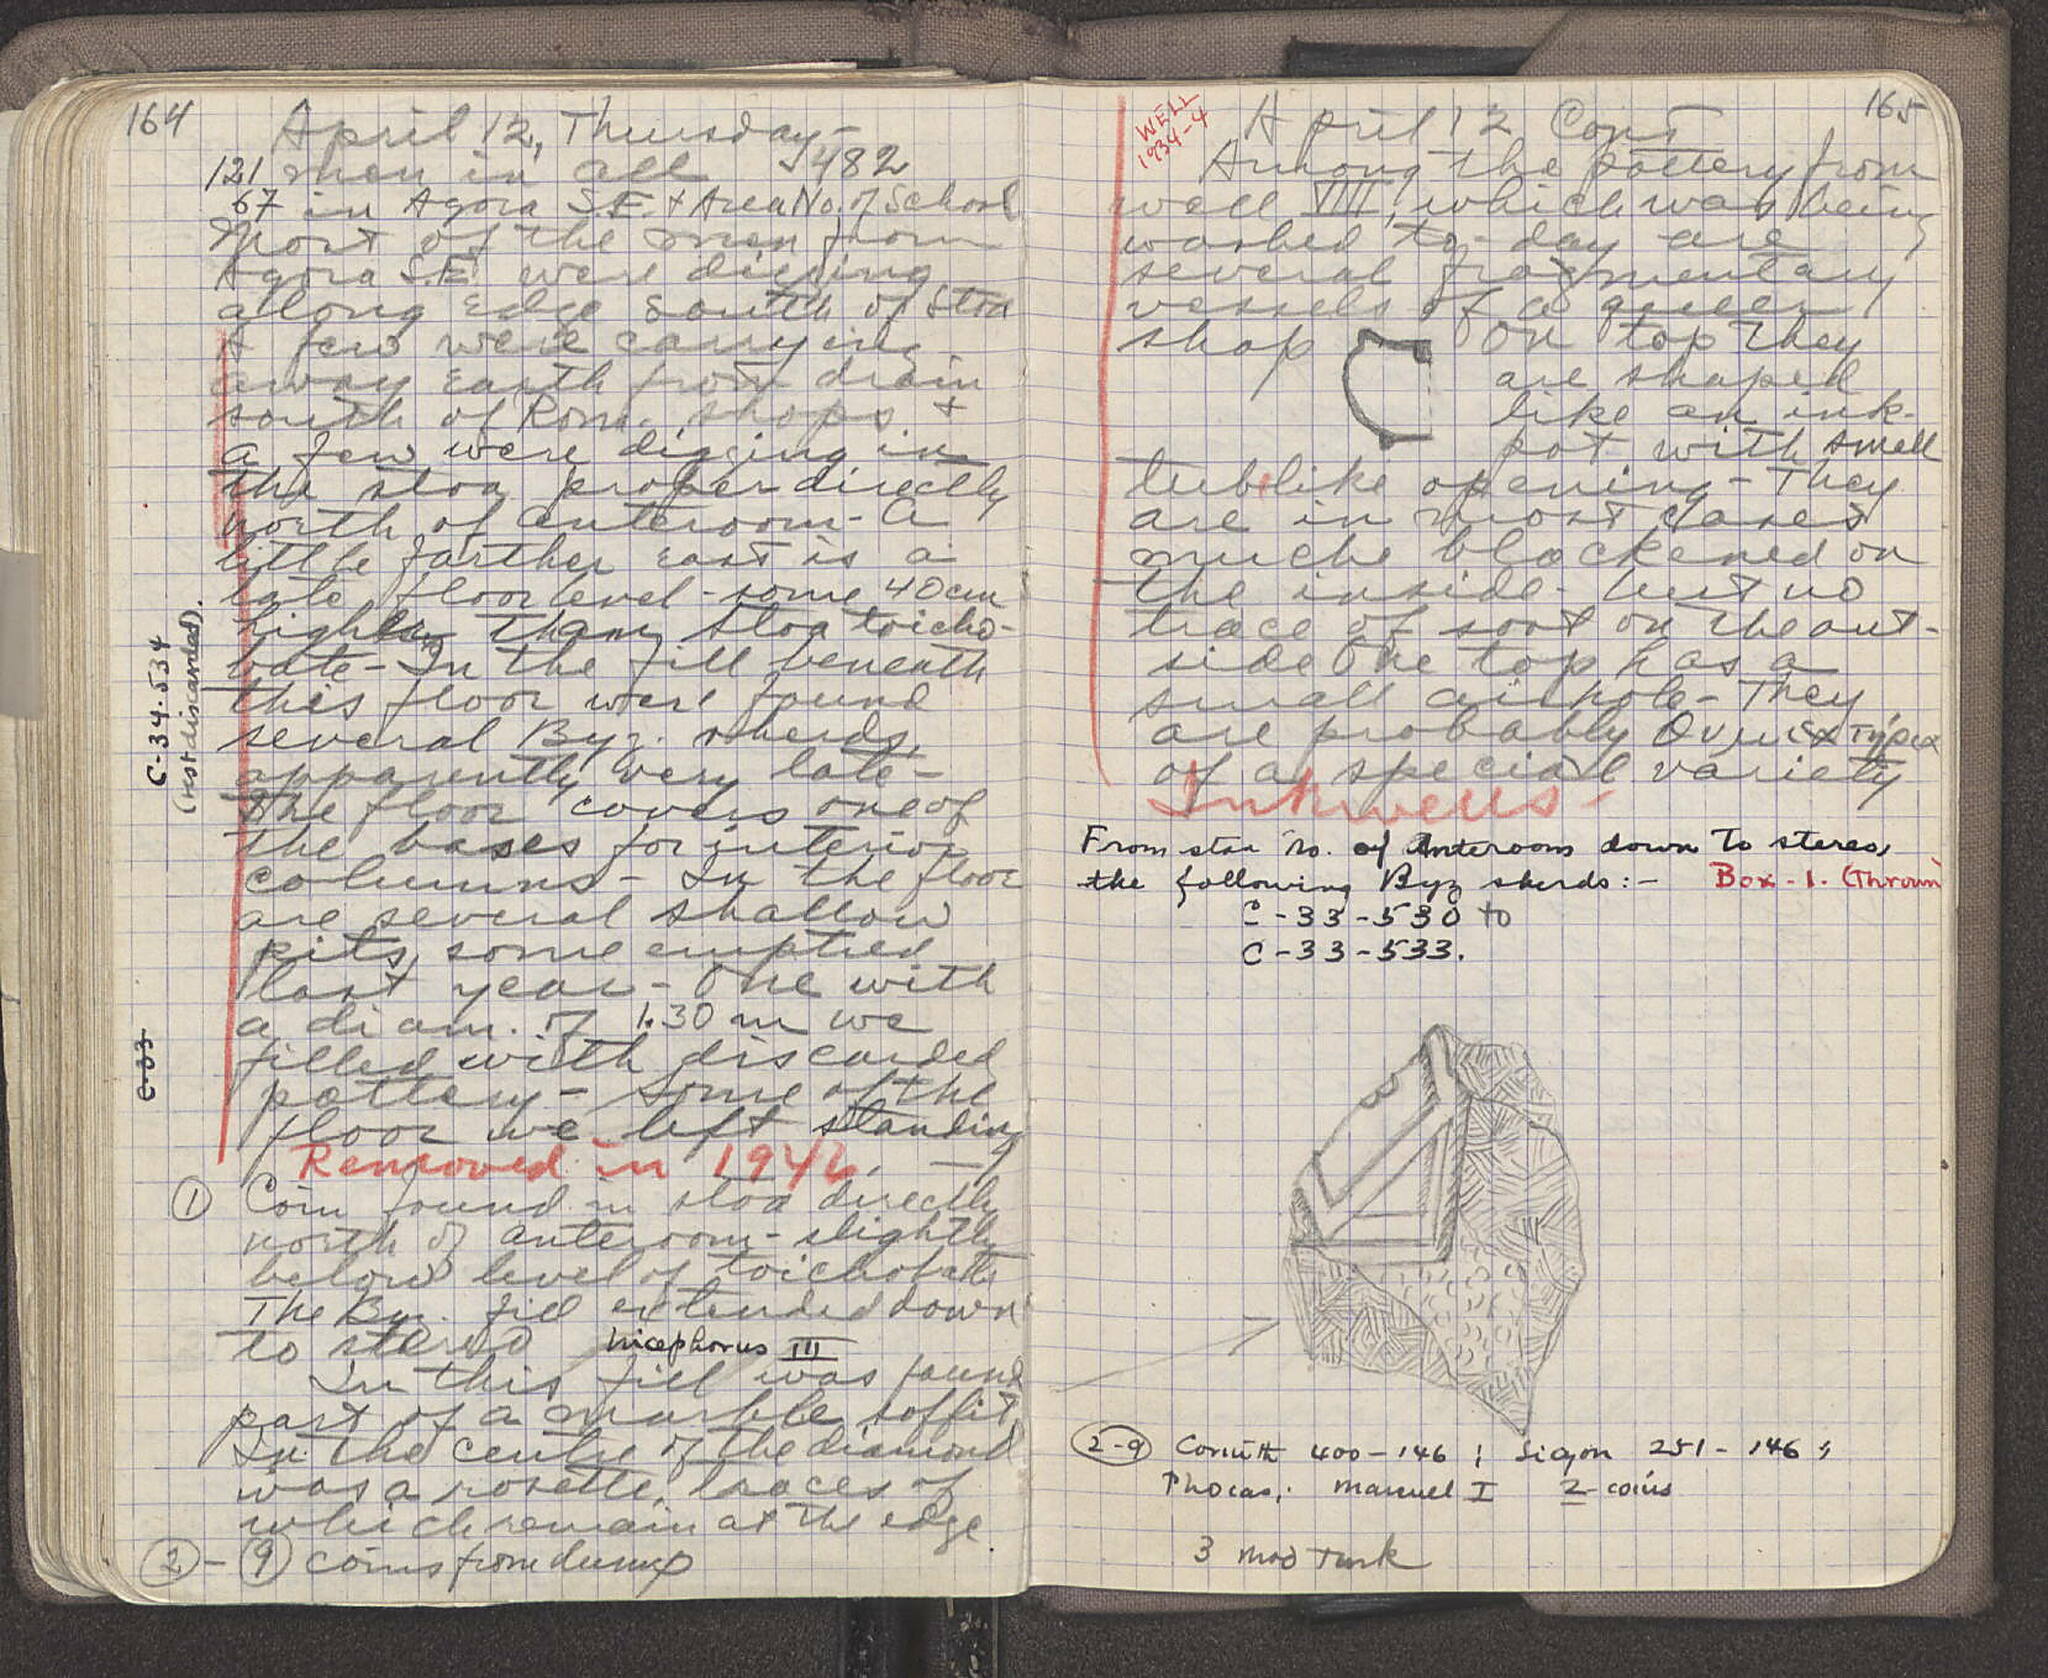 164
April 12, Thursday-
121 men in all 482
67 in Agora S.E. + Area No. of School
Most of the men from
Agora S.E. were digging
along edge south of Stoa
A few were carrying
away earth from drain
south of Rom. shops +
a few were digging in
the stoa proper directly
north of anteroom - A
little farther east is a
late floor level - some 40 cm
higher than stoa toicho-
bate - In the fill beneath
this floor were found
several Byz. sherds,
apparently very late -
The floor covers one of
the bases for interior
columns - In the floor
are several shallow
pits, some emptied
last year - One with
a diam. of 1.30 m we
filled with discarded
pottery - some of the
floor we left standing
Removed in 1946.
① Coin found in stoa directly
north of anteroom - slightly
below level of toichobate
The Byz. fill extended down
to stereo Nicephorus III
In this fill was found
part of a marble soffit,
In the centre of the diamond
was a rosette, traces of
which remain at the edge.
② - ⑨ coins from dump
C-34.534
(rest discarded).
C-33
165
WELL
1934-4
April 12 Cont
Among the pottery from
well VIII, which was being
washed to-day are
several fragmentary
vessels of a queer
shap On top they
are shaped
like an ink-
pot with small
tublike opening - They
are in most cases
much blackened on
the inside - but no
trace of soot on the out-
side One top has a
small airhole - They
are probably
of a special variety
Inkwells -
From stoa No. of Anteroom down to stereo,
the following Byz sherds:- Box - 1. (Thrown)
C-33-530 to
C-33-533.
2-9 Corinth 400-146; Sicyon 251-146;
Phocas; Manuel I 2 coins
3 mod Turk